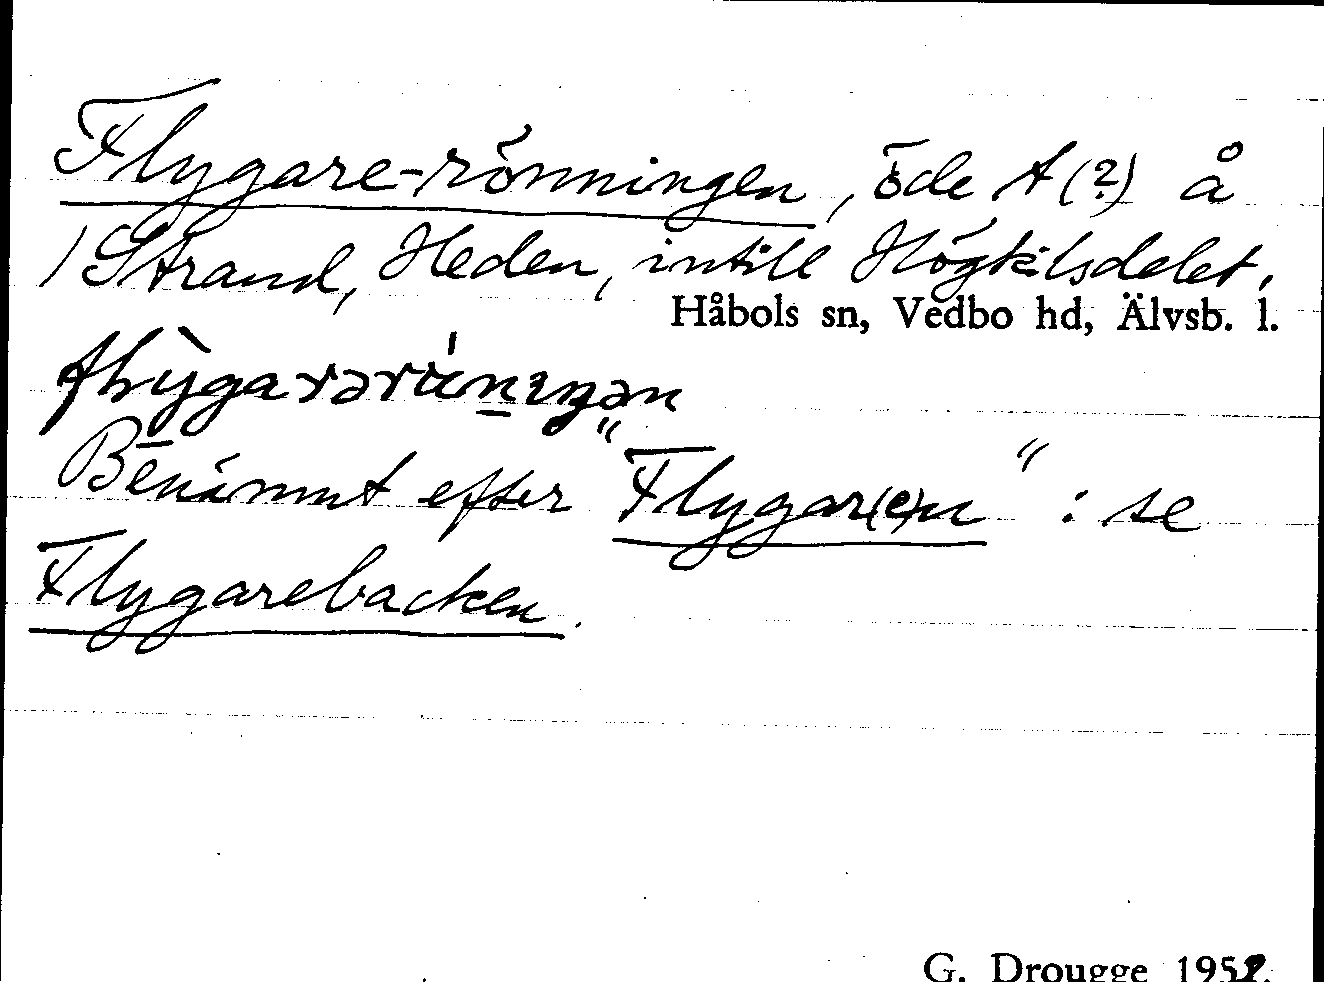 Flygare-rönningen, öde t (?) å
/ Strand, Heden, intill Högkilsdelet.
Håbols sn, Vedbo hd, Älvsb. l.
Benämnt efter "Flygar(e)n": se
Flygarebacken.
G. Drougge 1952.